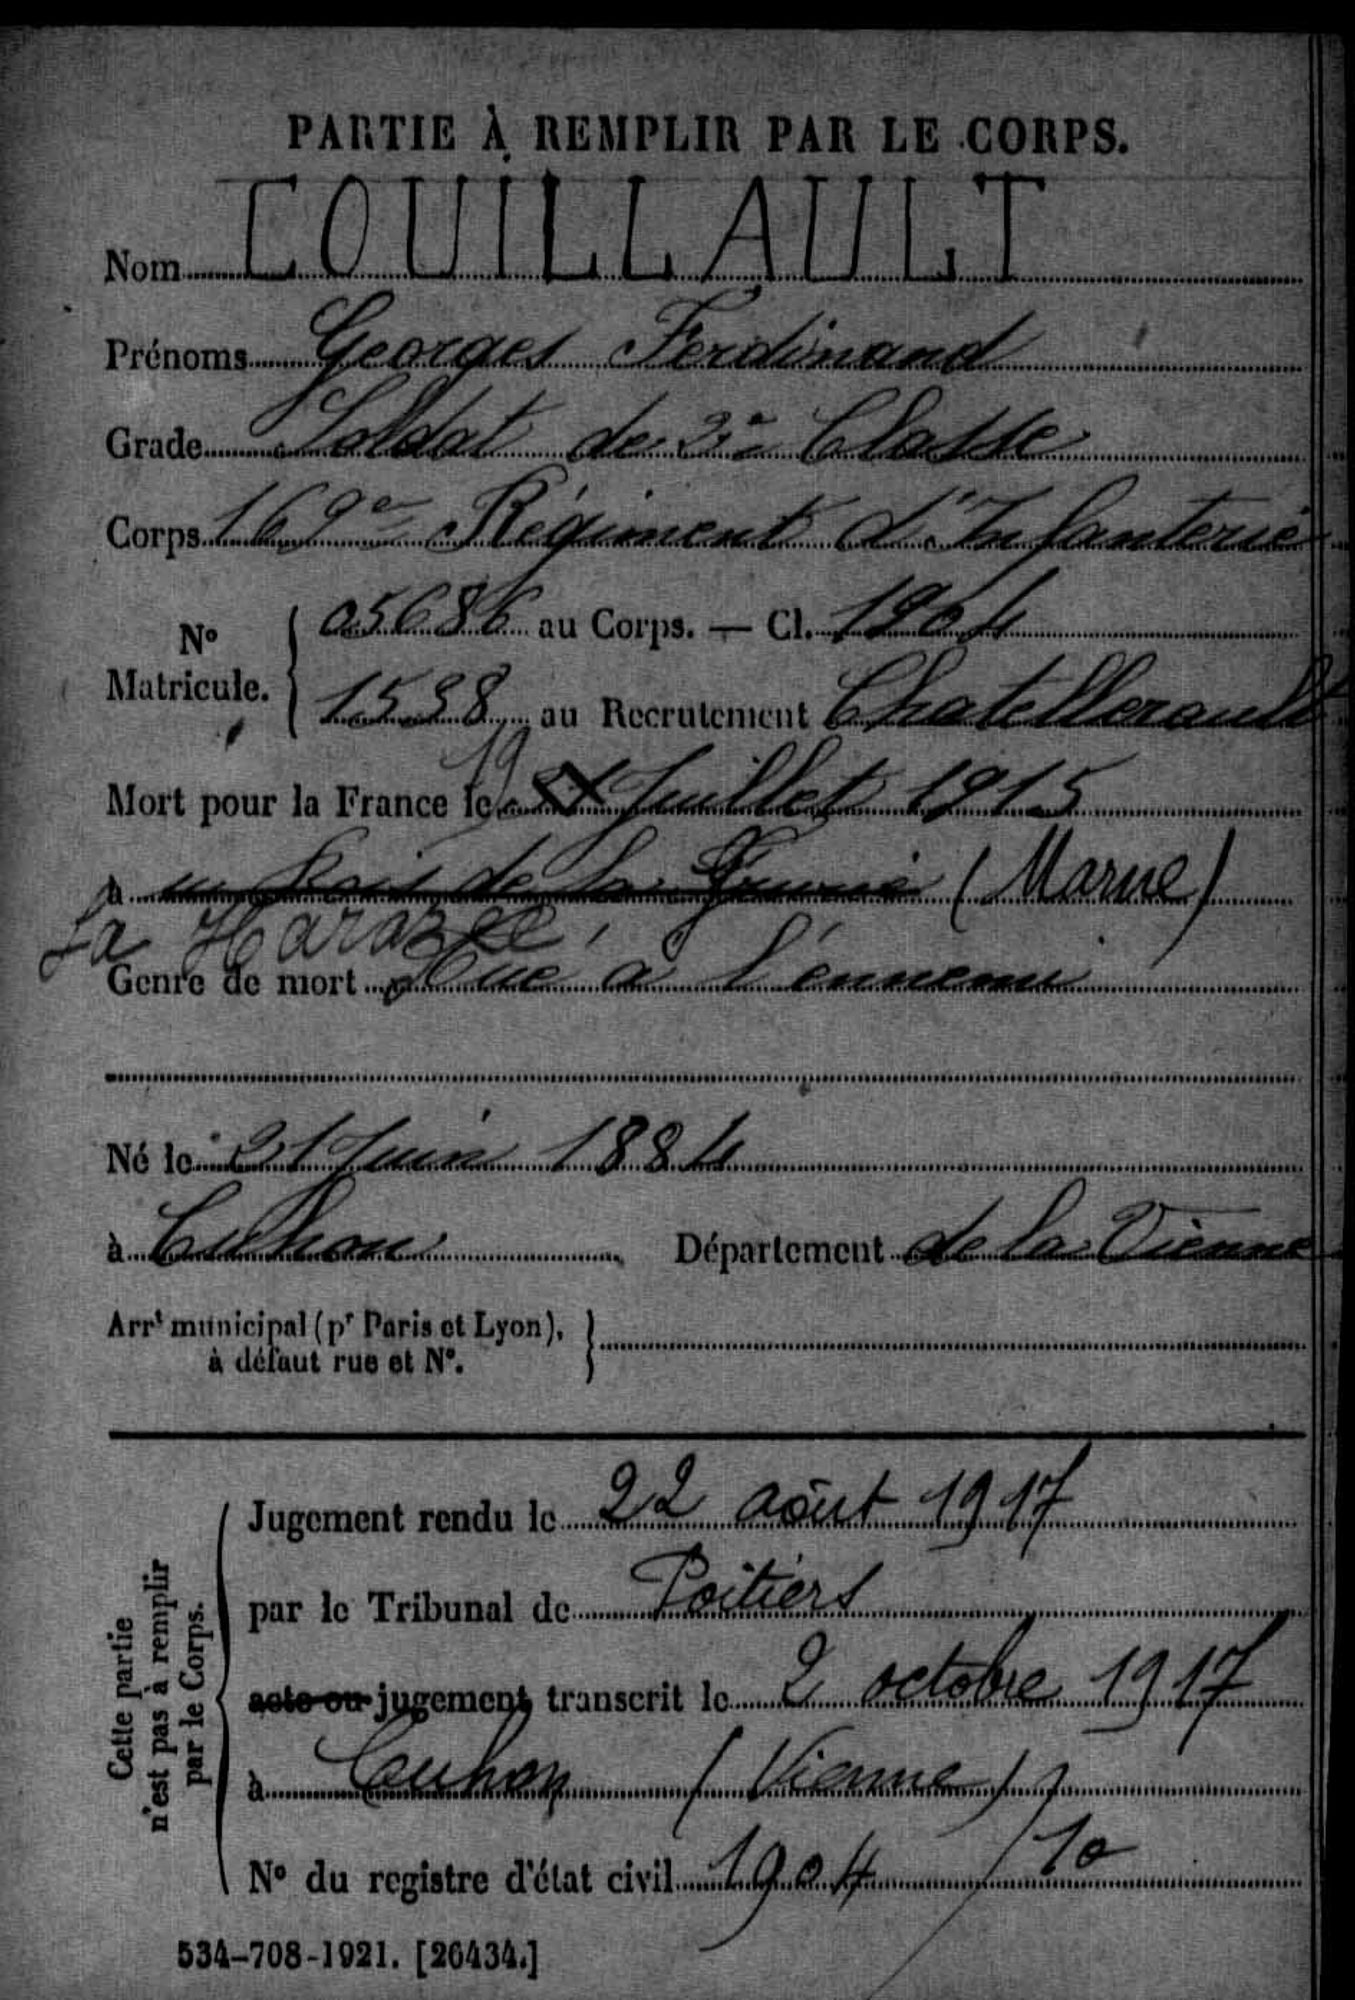 PARTIE À REMPLIR PAR LE CORPS.
Nom COUILLAULT
Prénoms Georges Ferdinand
Grade Soldat de 2e Classe
Corps 169e Régiment d'Infanterie
No Matricule. 05686 au Corps. — Cl. 1904
1538 au Recrutement Chatellerault
Mort pour la France le 19 Juillet 1915
à au Bois de la Grurie (Marne)
La Harazée,
Genre de mort Tué à l'ennemi
Né le 21 Juin 1884
à Cuhon Département de la Vienne
Arrt municipal (pr Paris et Lyon),
à défaut rue et No.
Cette partie
n'est pas à remplir
par le Corps.
Jugement rendu le 22 août 1917
par le Tribunal de Poitiers
acte ou jugement transcrit le 2 octobre 1917
à Cuhon (Vienne)
No du registre d'état civil 1904 / 10
534-708-1921. [26434.]